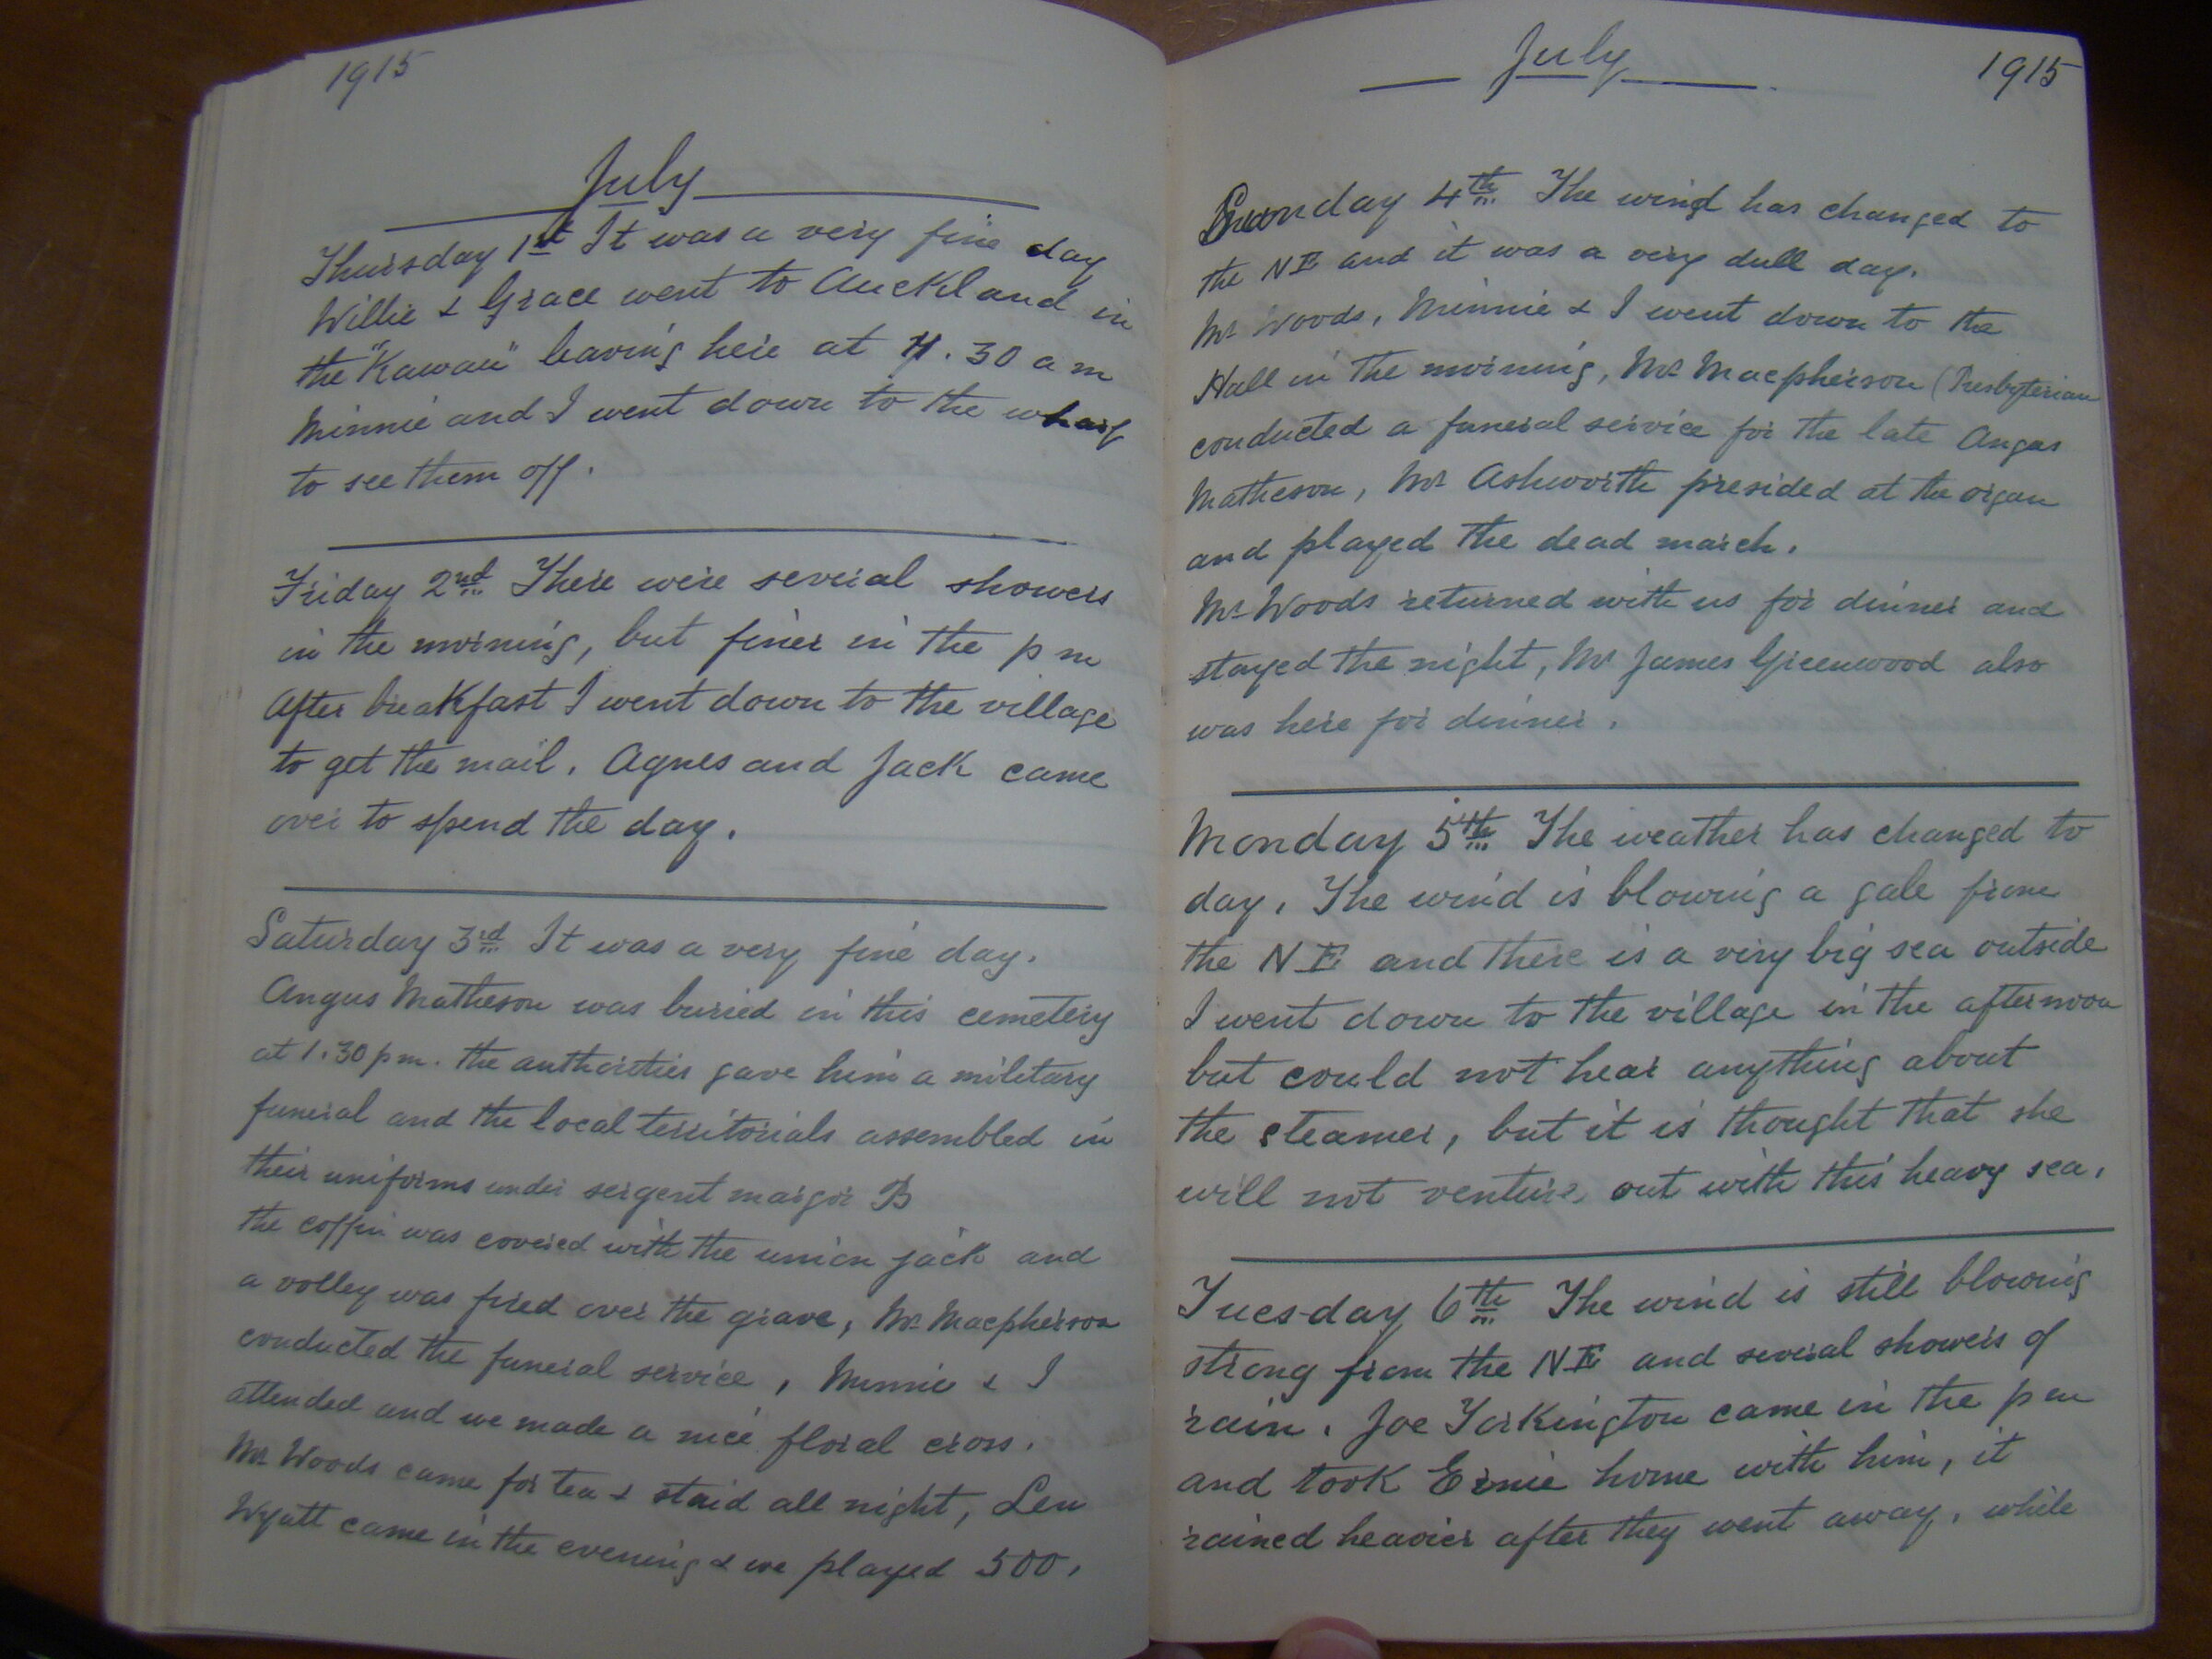 1915
July
Thursday 1st It was a very fine day
Willie & Grace went to Auckland in
the "Kawau" leaving here at 11.30 a m
Minnie and I went down to the wharf
to see them off.
Friday 2nd There were several showers
in the morning, but finer in the p m
After breakfast I went down to the village
to get the mail. Agnes and Jack came
over to spend the day.
Saturday 3rd It was a very fine day.
Angus Matheson was buried in this cemetery
at 1.30 pm. the authorities gave him a military
funeral and the local territorials assembled in
their uniforms under sergent marjor B
the coffin was covered with the union jack and
a volley was fired over the grave, Mr Macpherson
conducted the funeral service, Minnie & I
attended and we made a nice floral cross.
Mr Woods came for tea & staid all night, Len
Wyatt came in the evening & we played 500.
July 1915
Sunday 4th The wind has changed to
the NE and it was a very dull day.
Mr Woods, Minnie & I went down to the
Hall in the morning, Mr Macpherson (Presbyterian
conducted a funeral service for the late Angas
Matheson, Mr Ashworth presided at the organ
and played the dead march.
Mr Woods returned with us for dinner and
stayed the night, Mr James Greenwood also
was here for dinner.
Monday 5th The weather has changed to
day. The wind is blowing a gale from
the N E and there is a very big sea outside
I went down to the village in the afternoon
but could not hear anything about
the steamer, but it is thought that she
will not venture out with this heavy sea.
Tuesday 6th The wind is still blowing
strong from the NE and several showers of
rain. Joe Torkington came in the p m
and took Ernie home with him, it
rained heavier after they went away, while